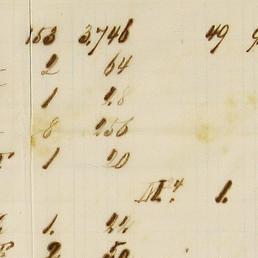 153 3,746 49
2 64
1 28
8 256
1 20
1.
1. 24
2 50